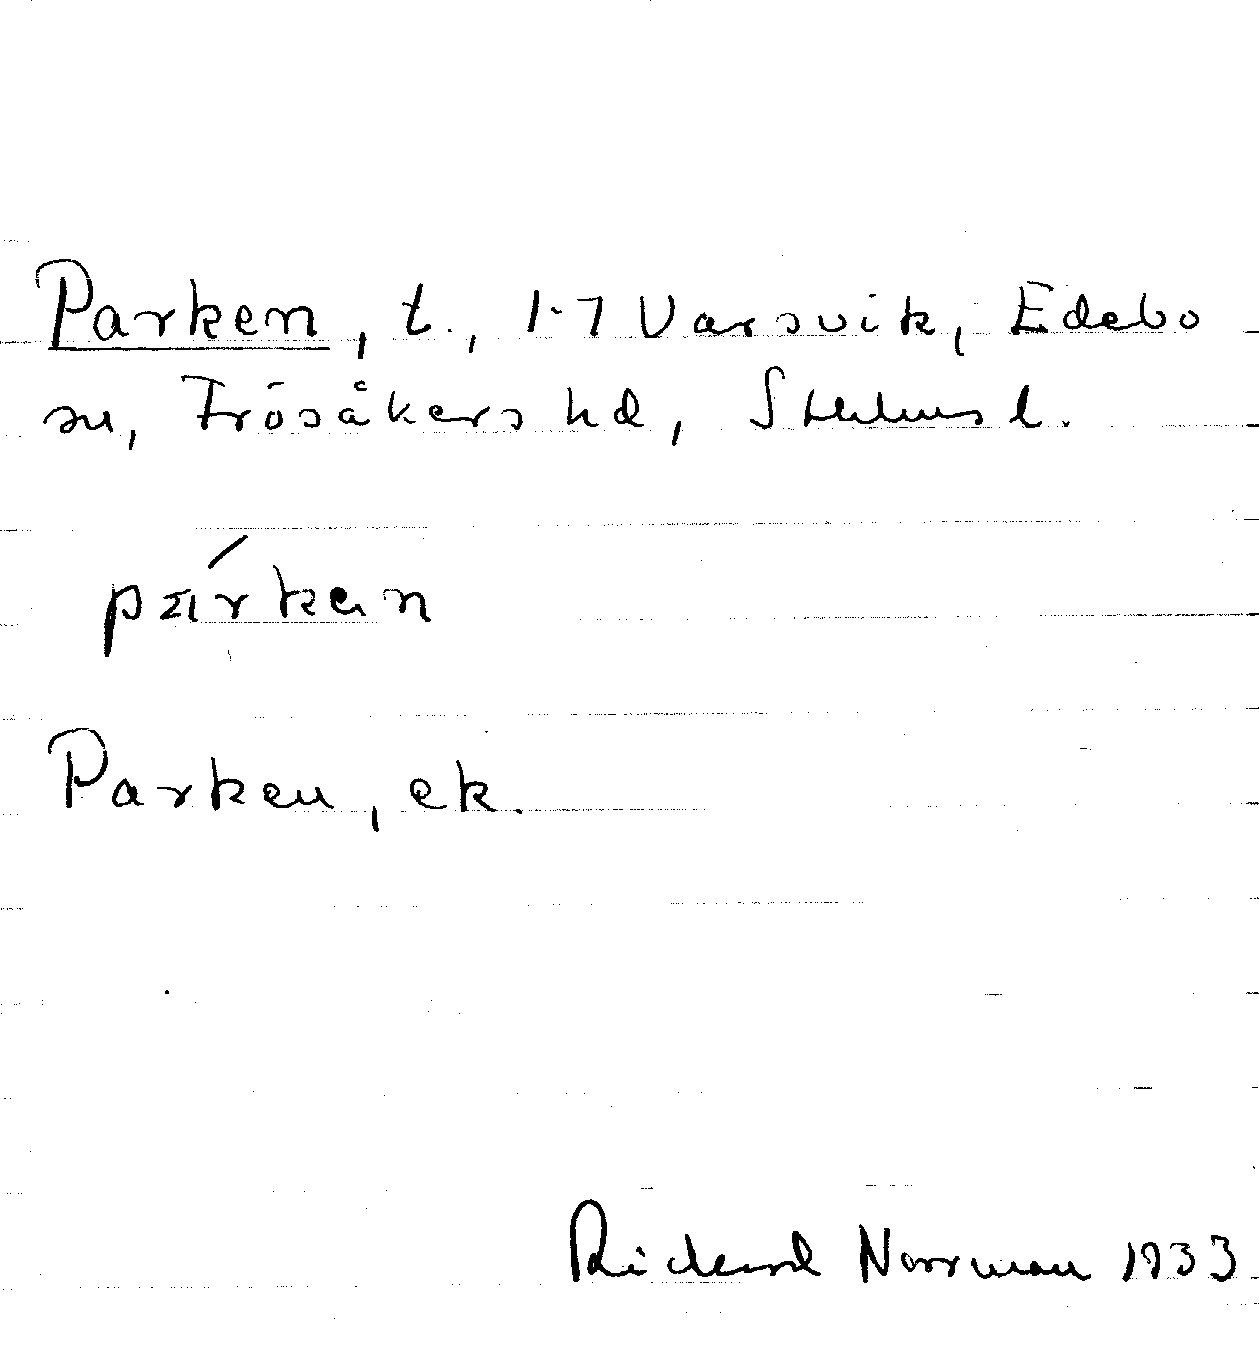 Parken, t., 1-7 Varsvik, Edebo
sn, Frösåkers hd, Sthlms l.
párken
Parken, ek.
Rickard Norrman 1933